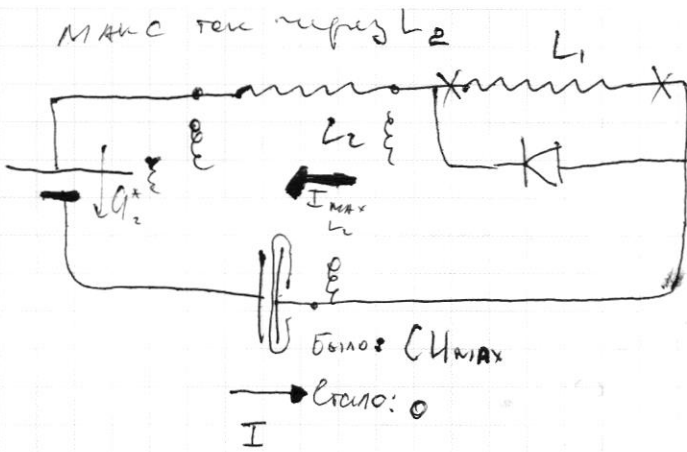 МАКС ток через L2
L1
L2
q2*
I MAX L2
Было: CUMAX
Стало: 0
I